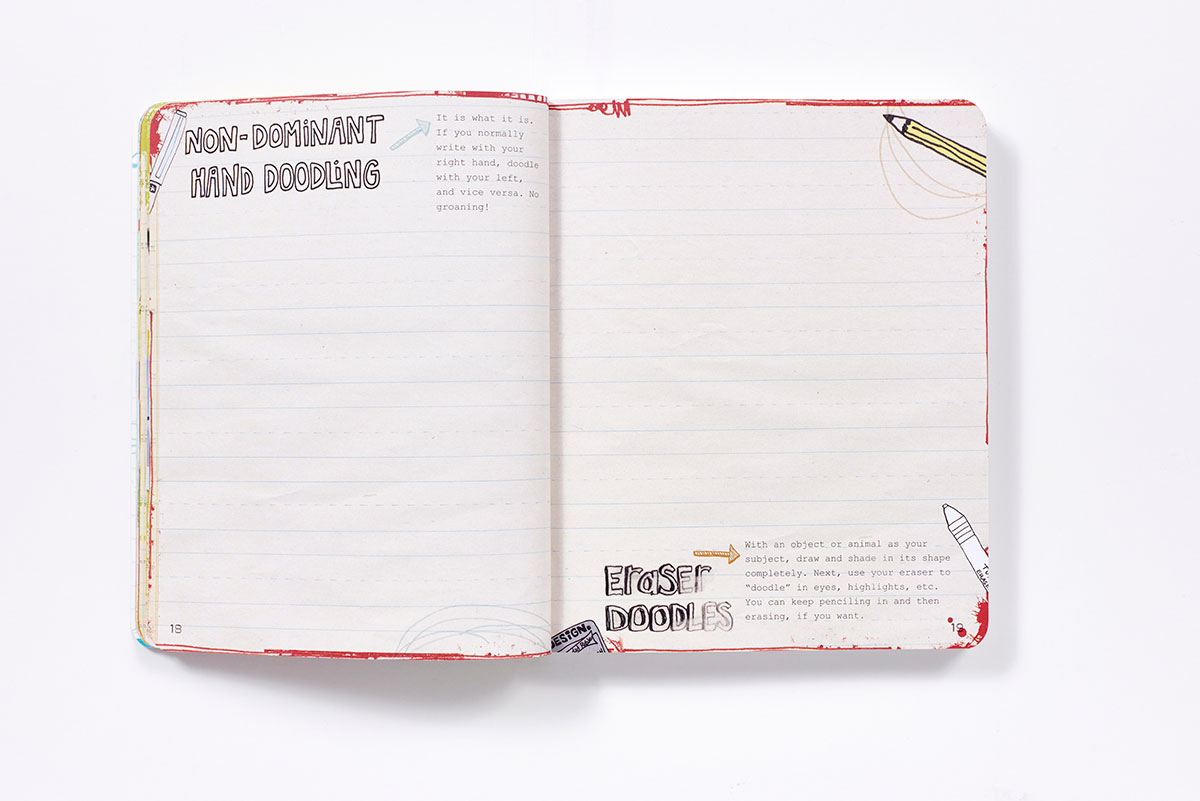 NON-DOMiNANT
HAND DOODLiNG
It is what it is.
If you normally
write with your
right hand, doodle
with your left,
and vice versa. No
groaning!
18
ERaSER
DOODLES
With an object or animal as your
subject, draw and shade in its shape
completely. Next, use your eraser to
“doodle” in eyes, highlights, etc.
You can keep penciling in and then
erasing, if you want.
DESiGN.
19